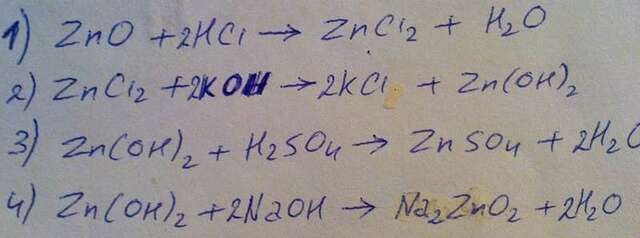 1) ZnO + 2HCl → ZnCl₂ + H₂O
2) ZnCl₂ + 2KOH → 2KCl + Zn(OH)₂
3) Zn(OH)₂ + H₂SO₄ → ZnSO₄ + 2H₂O
4) Zn(OH)₂ + 2NaOH → Na₂ZnO₂ + 2H₂O